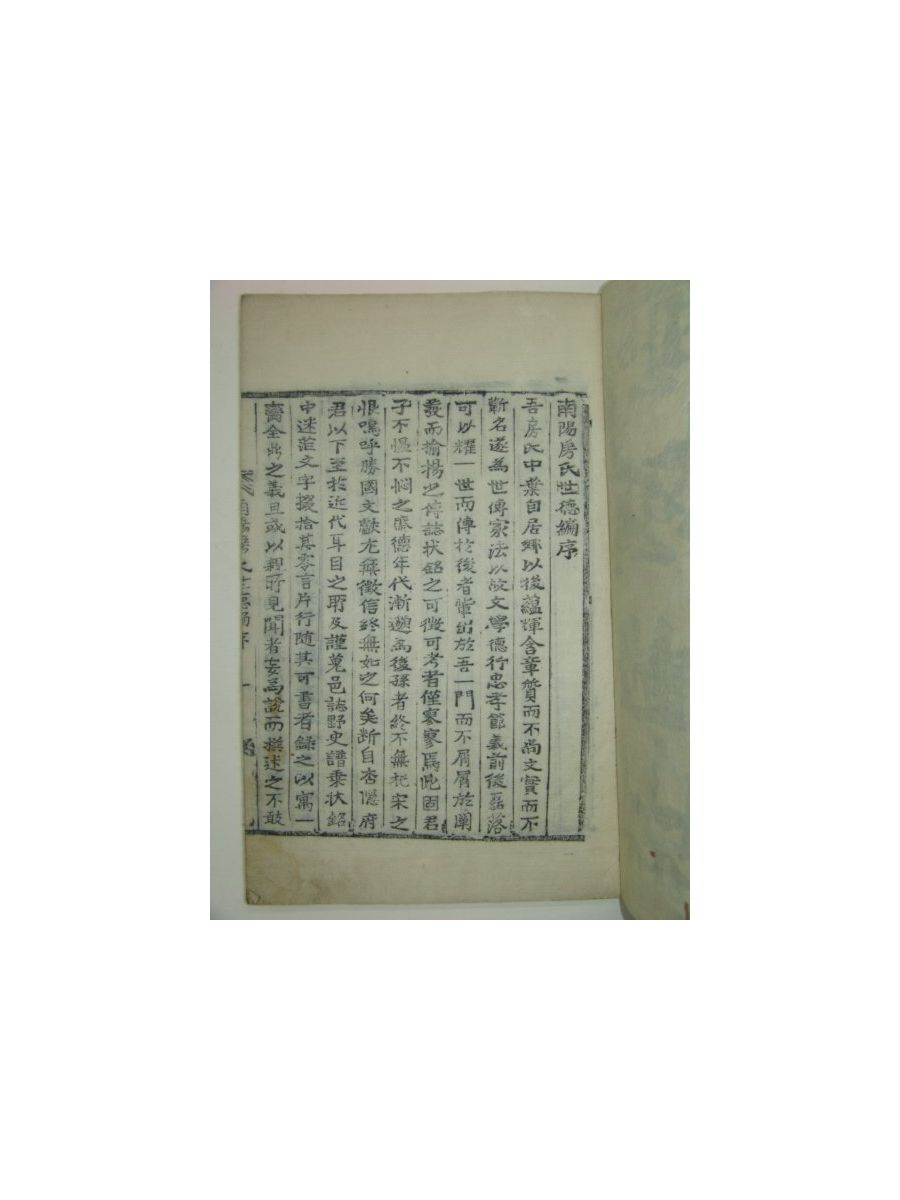 南陽房氏世德編序
吾房氏中葉自居鄕以後蘊輝含章質而不尚文實而不
靳名遂爲世傳家法以故文學德行忠孝節義前後磊落
可以耀一世而傳於後者輩出於吾一門而不屑屑於闡
發而揄揚之傳誌狀銘之可徵可考者僅寥寥焉此固君
子不愠不悶之庸德年代漸邈爲後孫者終不無杞宋之
恨嗚呼勝國文獻尤無徵信終無如之何矣斷自杏隱府
君以下至於近代耳目之所及謹蒐邑誌野史譜乘狀銘
中迷茫文字掇拾其零言片行随其可書者錄之以寓一
臠全鼎之義且或以親所見聞者妄爲說而撰述之不敢
南陽房氏世德編序 一